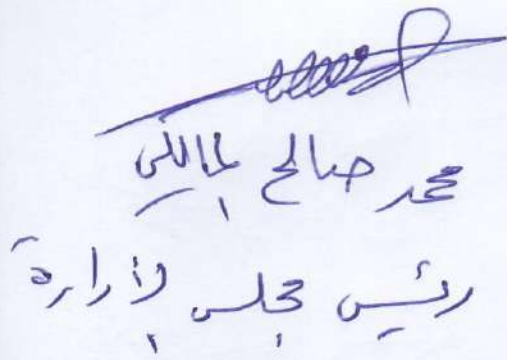 محمد صالح المالكي
رئيس مجلس الإدارة